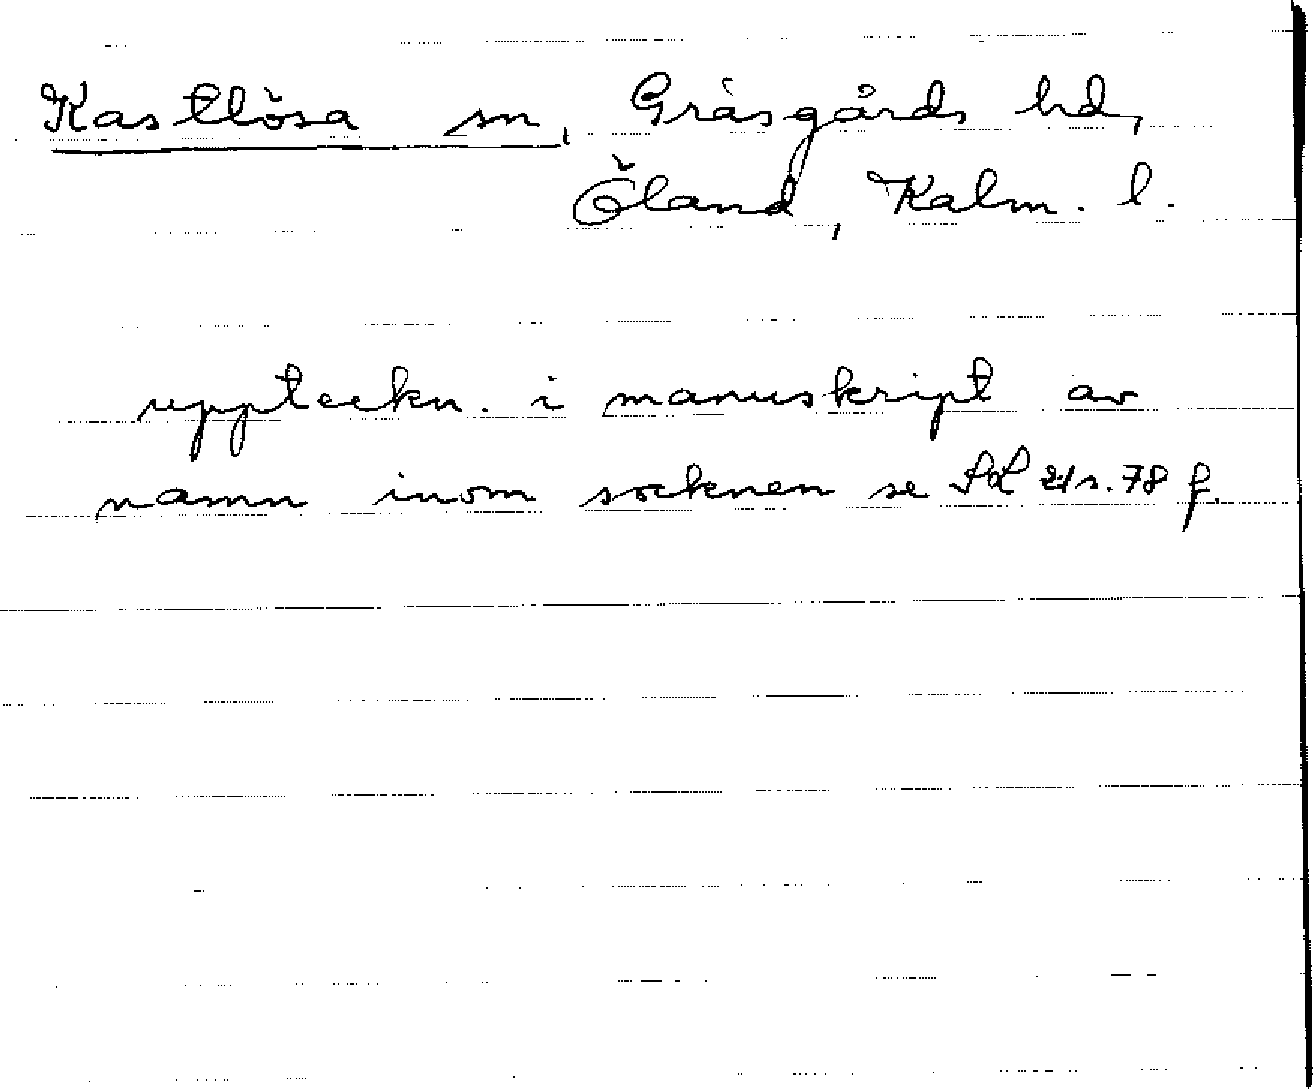 Kastlösa sn, Gräsgårds hd,
Öland, Kalm. l.
uppteckn. i manuskript av
namn inom socknen se s. 78 f.